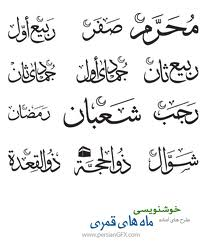 مُحَرَّم صفَر ربيع أوّل
ربيع ثان جُمادى أول جُمادى ثان
رجب شعبان رمضان
شوّال ذوالحجّة ذوالقعدة
خوشنویسی
طرح های آماده ماه های قمری
www.persianGFX.com